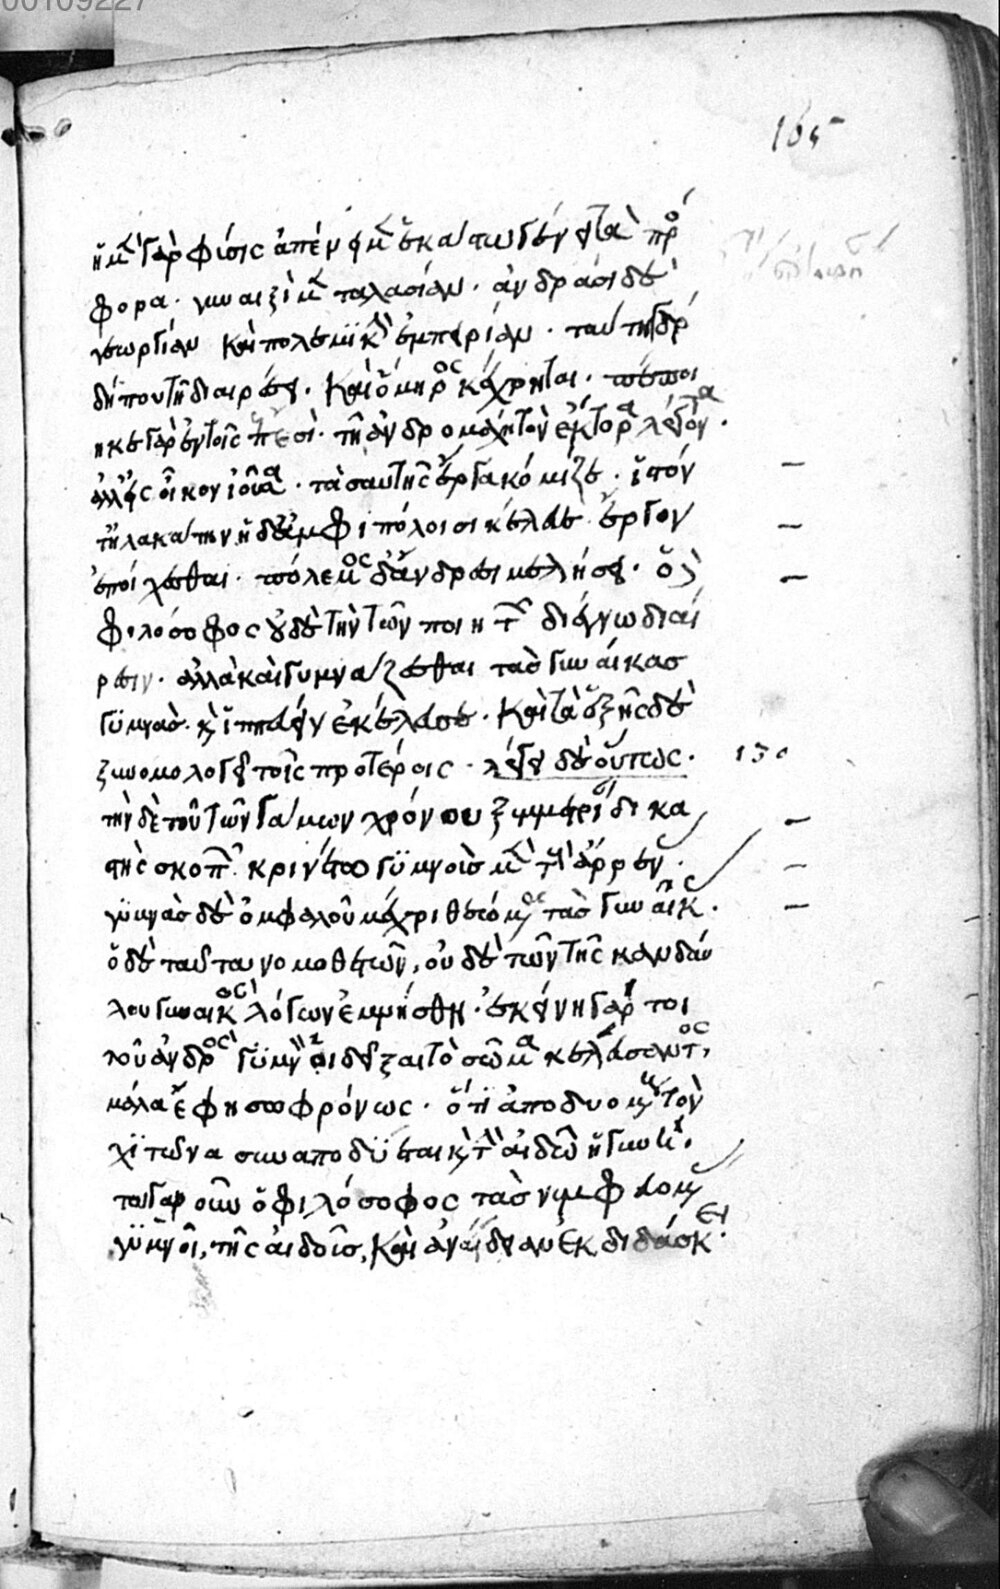 00109227
165
ἡ μὲν γὰρ φύσις ἀπένειμεν ἑκατέρῳ γένει τὰ πρόσ
φορα· γυναιξὶ μὲν ταλασίαν· ἀνδράσι δὲ
γεωργίαν καὶ πολεμικὴν ἐμπειρίαν· ταύτῃ γάρ
δήπου τῇ διαιρέσει καὶ ὅμηρος κέχρηται·
γὰρ ἐν τοῖς ἔπεσι τῇ ἀνδρομάχῃ τὸν ἕκτορα λέγοντα·
ἀλλ' εἰς οἶκον ἰοῦσα· τὰ σαυτῆς ἔργα κόμιζε· ἱστόν
τ' ἠλακάτην ἠδὲ ἀμφιπόλοισι κέλευε ἔργον
ἐποίχεσθαι· πόλεμος δ' ἄνδρεσι μελήσει· ὁ δὲ
φιλόσοφος οὐδὲ τὴν τῶν ποιητῶν διέγνω διαί
ρεσιν· ἀλλὰ καὶ γυμνάζεσθαι τὰς γυναίκας
γυμνὰς καὶ ἱππεύειν ἐκέλευσε· καὶ τὰ ἑξῆς δὲ
ξυνομολογεῖ τοῖς προτέροις· λέγει δὲ οὕτως· 130
τὴν δὲ τοῦ τῶν γάμων χρόνου ξυμμετρίαν ὁ δικα
στὴς σκοπῶν κρινέτω γυμνοὺς μὲν τοὺς ἄρρενας·
γυμνὰς δὲ ὀμφαλοῦ μέχρι θεώμενος τὰς γυναῖκας·
ὁ δὲ ταῦτα νομοθετῶν, οὐδὲ τῶν τῆς κανδαύ
λου γυναικὸς λόγων ἐμνήσθη· ἐκείνη γάρ τοι
τοῦ ἀνδρὸς γυμνὴν ἐπιδεῖξαι τὸ σῶμα κελεύσαντος,
μάλα ἔφη σωφρόνως· ὅτι ἀποδυομένη τὸν
χιτῶνα συναποδύεται καὶ τὴν αἰδῶ ἡ γυνή·
ταύτας γὰρ οὖν ὁ φιλόσοφος τὰς νυμφευομένας
γυμνοῖ, τῆς αἰδοῦς, καὶ ἀναίδειαν ἐκδιδάσκει·